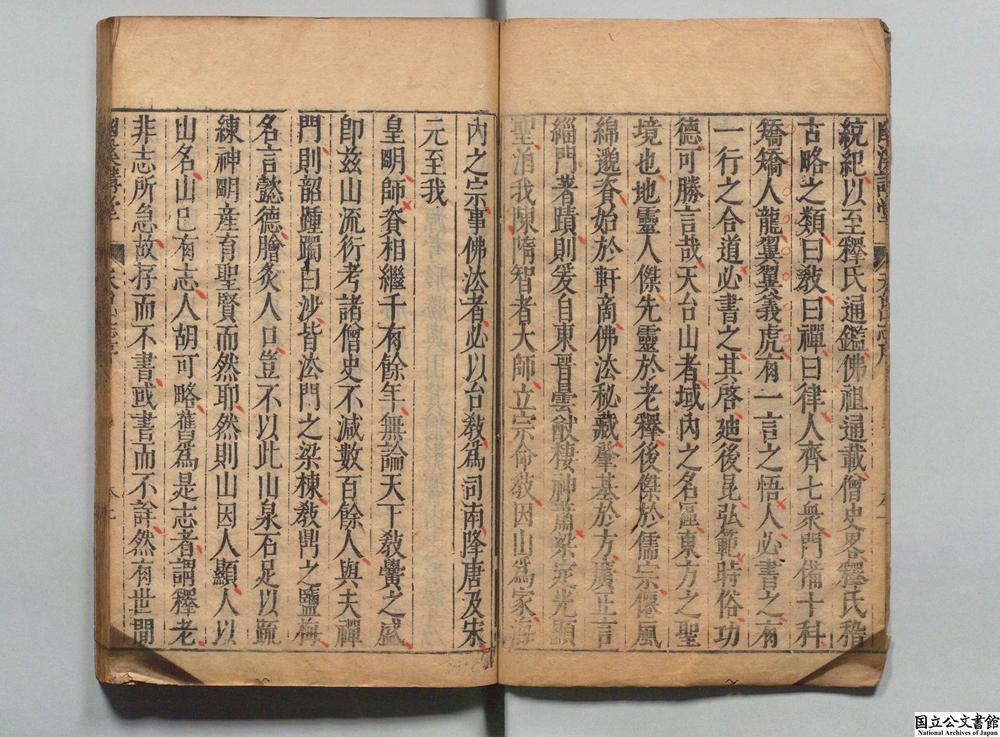 統紀以至釋氏通鑑佛祖通載僧史畧釋氏稽
古略之類曰敎曰禪曰律人齊七衆門備十科
矯矯人龍翼翼義虎有一言之悟人必書之有
一行之合道必書之其啓廸後昆弘範時俗功
德可勝言哉天台山者域内之名區東方之聖
境也地靈人傑先靈於老釋後傑於儒宗僊風
綿邈肇始於軒啇佛法秘藏肇基於方廣正言
緇門著蹟則爰自東晋曇猷棲神蕭梁定光顯
聖洎我陳隋智者大師立宗命敎因山爲家海
内之宗事佛法者必以台敎爲司南降唐及宋
元至我
皇明師資相繼千有餘年無論天下敎黌之盛
卽兹山流衍考諸僧史不减數百餘人與夫禪
門則韶踵躅曰沙皆法門之梁棟敎鼎之鹽梅
名言懿德膾炙人口豈不以此山泉石足以䟽
練神明產育聖賢而然耶然則山因人顯人以
山名山已有志人胡可略舊爲是志者謂釋老
非志所急故存而不書或書而不詳然有世間
国立公文書館
National Archives of Japan